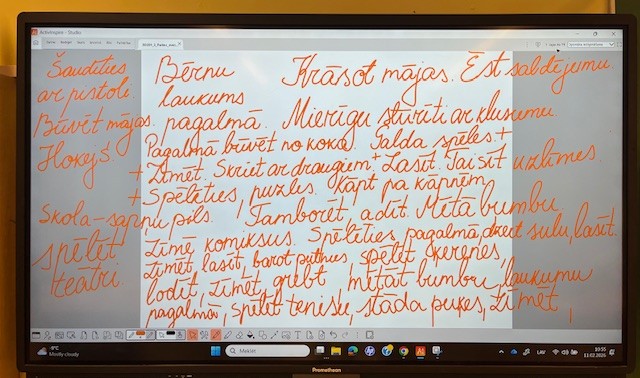 ActivInspire - Studio
Šaudīties Bērnu Krāsot mājas. Ēst saldējumu.
ar pistoli laukums
Būvēt mājas. pagalmā. Mierīgu stūrīti ar klusumu.
Hokejs Pagalmā būvēt no koka. Galda spēles +
+ Zīmēt. Skriet ar draugiem + Lasīt. Taisīt uzlīmes.
+ Spēlēties, puzles. Kāpt pa kāpnēm,
Skola-sapņu pils. Tamborēt, adīt. Mētā bumbu,
spēlēt Zīmē komiksus. Spēlēties pagalmā, dzert sulu, lasīt.
teātri. Zīmēt, lasīt, barot putnus, spēlēt ķerenes,
lodīt, zīmēt, grebt, mētāt bumbu, laukumu
pagalmā, spēlēt tenisu, stāda puķes, zīmēt,
-9°C
Mostly cloudy
Meklēt
LAV
10:55
11.02.2026
Promethean